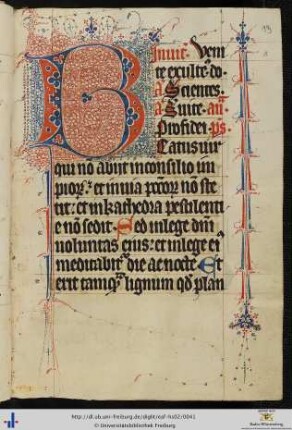 Inuit̄. Venı
te exulte. do.
a. Scientes.
a. Suite. an̄.
Profidei. ps̄.
B Eatus uir
qui nō abijt in consilio im
pior̄. et in uia pcc̄or̄ nō ste
tit: et in kathedra pestilenti
e nō sedit. Sed in lege dn̄i
uoluntas eius: et in lege ei᾽
meditabit̄ die ac nocte. Et
erit tamq̄ lignum qd̄ plan
http://dl.ub.uni-freiburg.de/diglit/esf-hs02/0041
© Universitätsbibliothek Freiburg
Baden-Württemberg